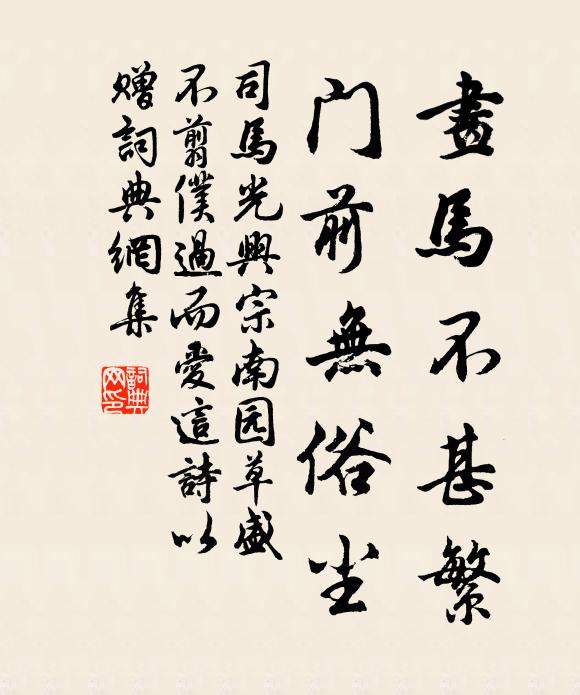 畫馬不甚繁
門前無俗尘
司馬光興宗南园草盛
不翦僕過而愛這詩以
贈詞典網集
詞典
网印